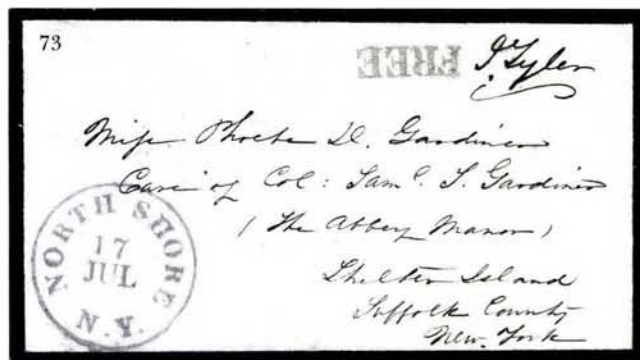 73
FREE
J. Tyler
Miss Phoebe D. Gardiner
Care of Col: Saml. S. Gardiner
(The Abbey Manor)
Shelter Island
Suffolk County
New. York
NORTH SHORE
17
JUL
N.Y.